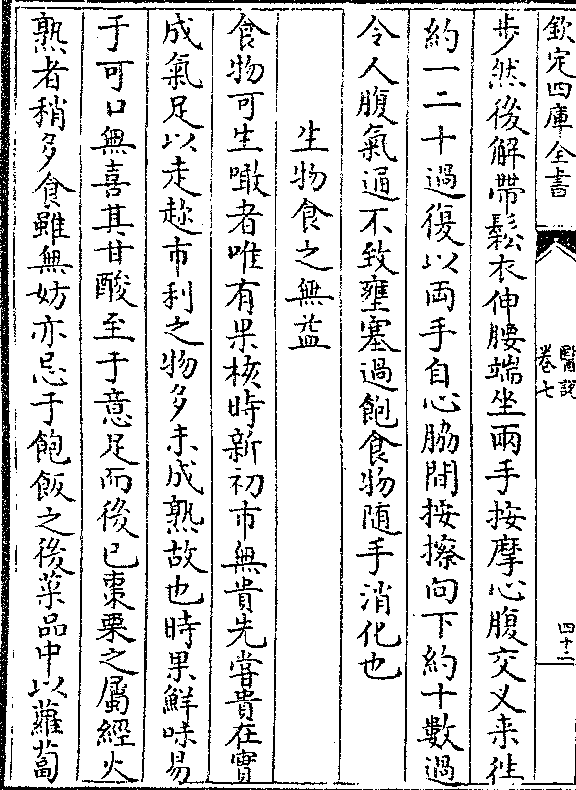 欽定四庫全書
醫說
卷七
四十二
步然後解帶鬆衣伸腰端坐兩手按摩心腹交叉来徃
約一二十過復以両手自心脇間按擦向下約十數過
令人腹氣通不致壅塞過飽食物随手消化也
生物食之無益
食物可生噉者唯有果核時新初市無貴先嘗貴在實
成氣足以走趂市利之物多未成熟故也時果鮮味易
于可口無喜其甘酸至于意足而後已棗栗之屬經火
熟者稍多食雖無妨亦忌于飽飯之後菜品中以蘿蔔